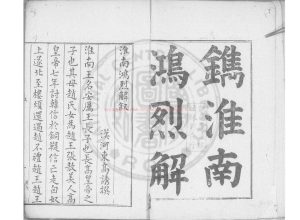 鐫淮南
鴻烈解
淮南鴻烈解敘
漢河東高誘撰
淮南王名安厲王長子也長高皇帝之
子也其母趙氏女為趙王張敖美人高
皇帝七年討韓信於銅鞮信亡走匈奴
上遂北至樓煩還過趙不禮趙王趙王